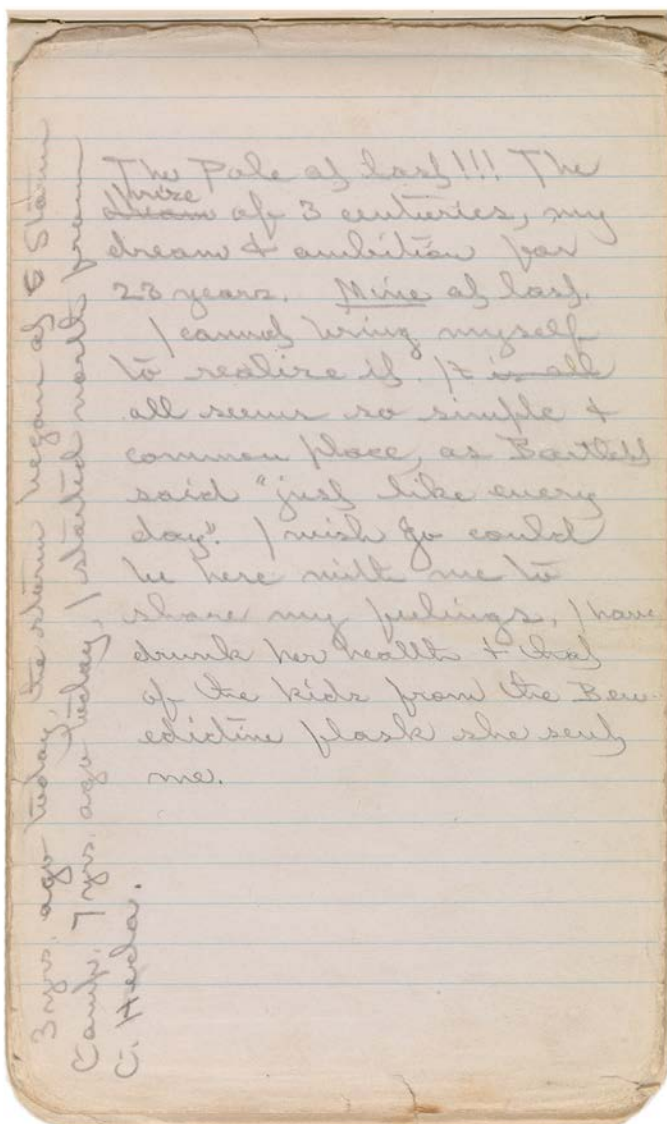 The Pole at last!!! The
prize
dream of 3 centuries, my
dream & ambition for
23 years. Mine at last.
I cannot bring myself
to realize it. It is all
all seems so simple &
common place, as Bartlett
said "just like every
day". I wish Jo could
be here with me to
share my feelings, I have
drunk her health & that
of the kids from the Ben-
edictine flask she sent
me.
3 yrs. ago today, the storm began at 6 Storm
Camp. 7 yrs. ago today, I started north from
C. Hecla.